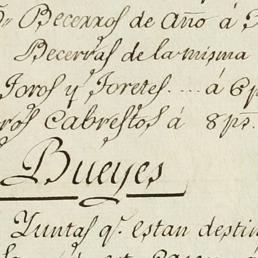 Becerros de Año á
Becerras de la misma
Toros y Toretes.... á 6 p
ros Cabrestos á 8 ps.
Bueyes
Yuntas q.e estan desti